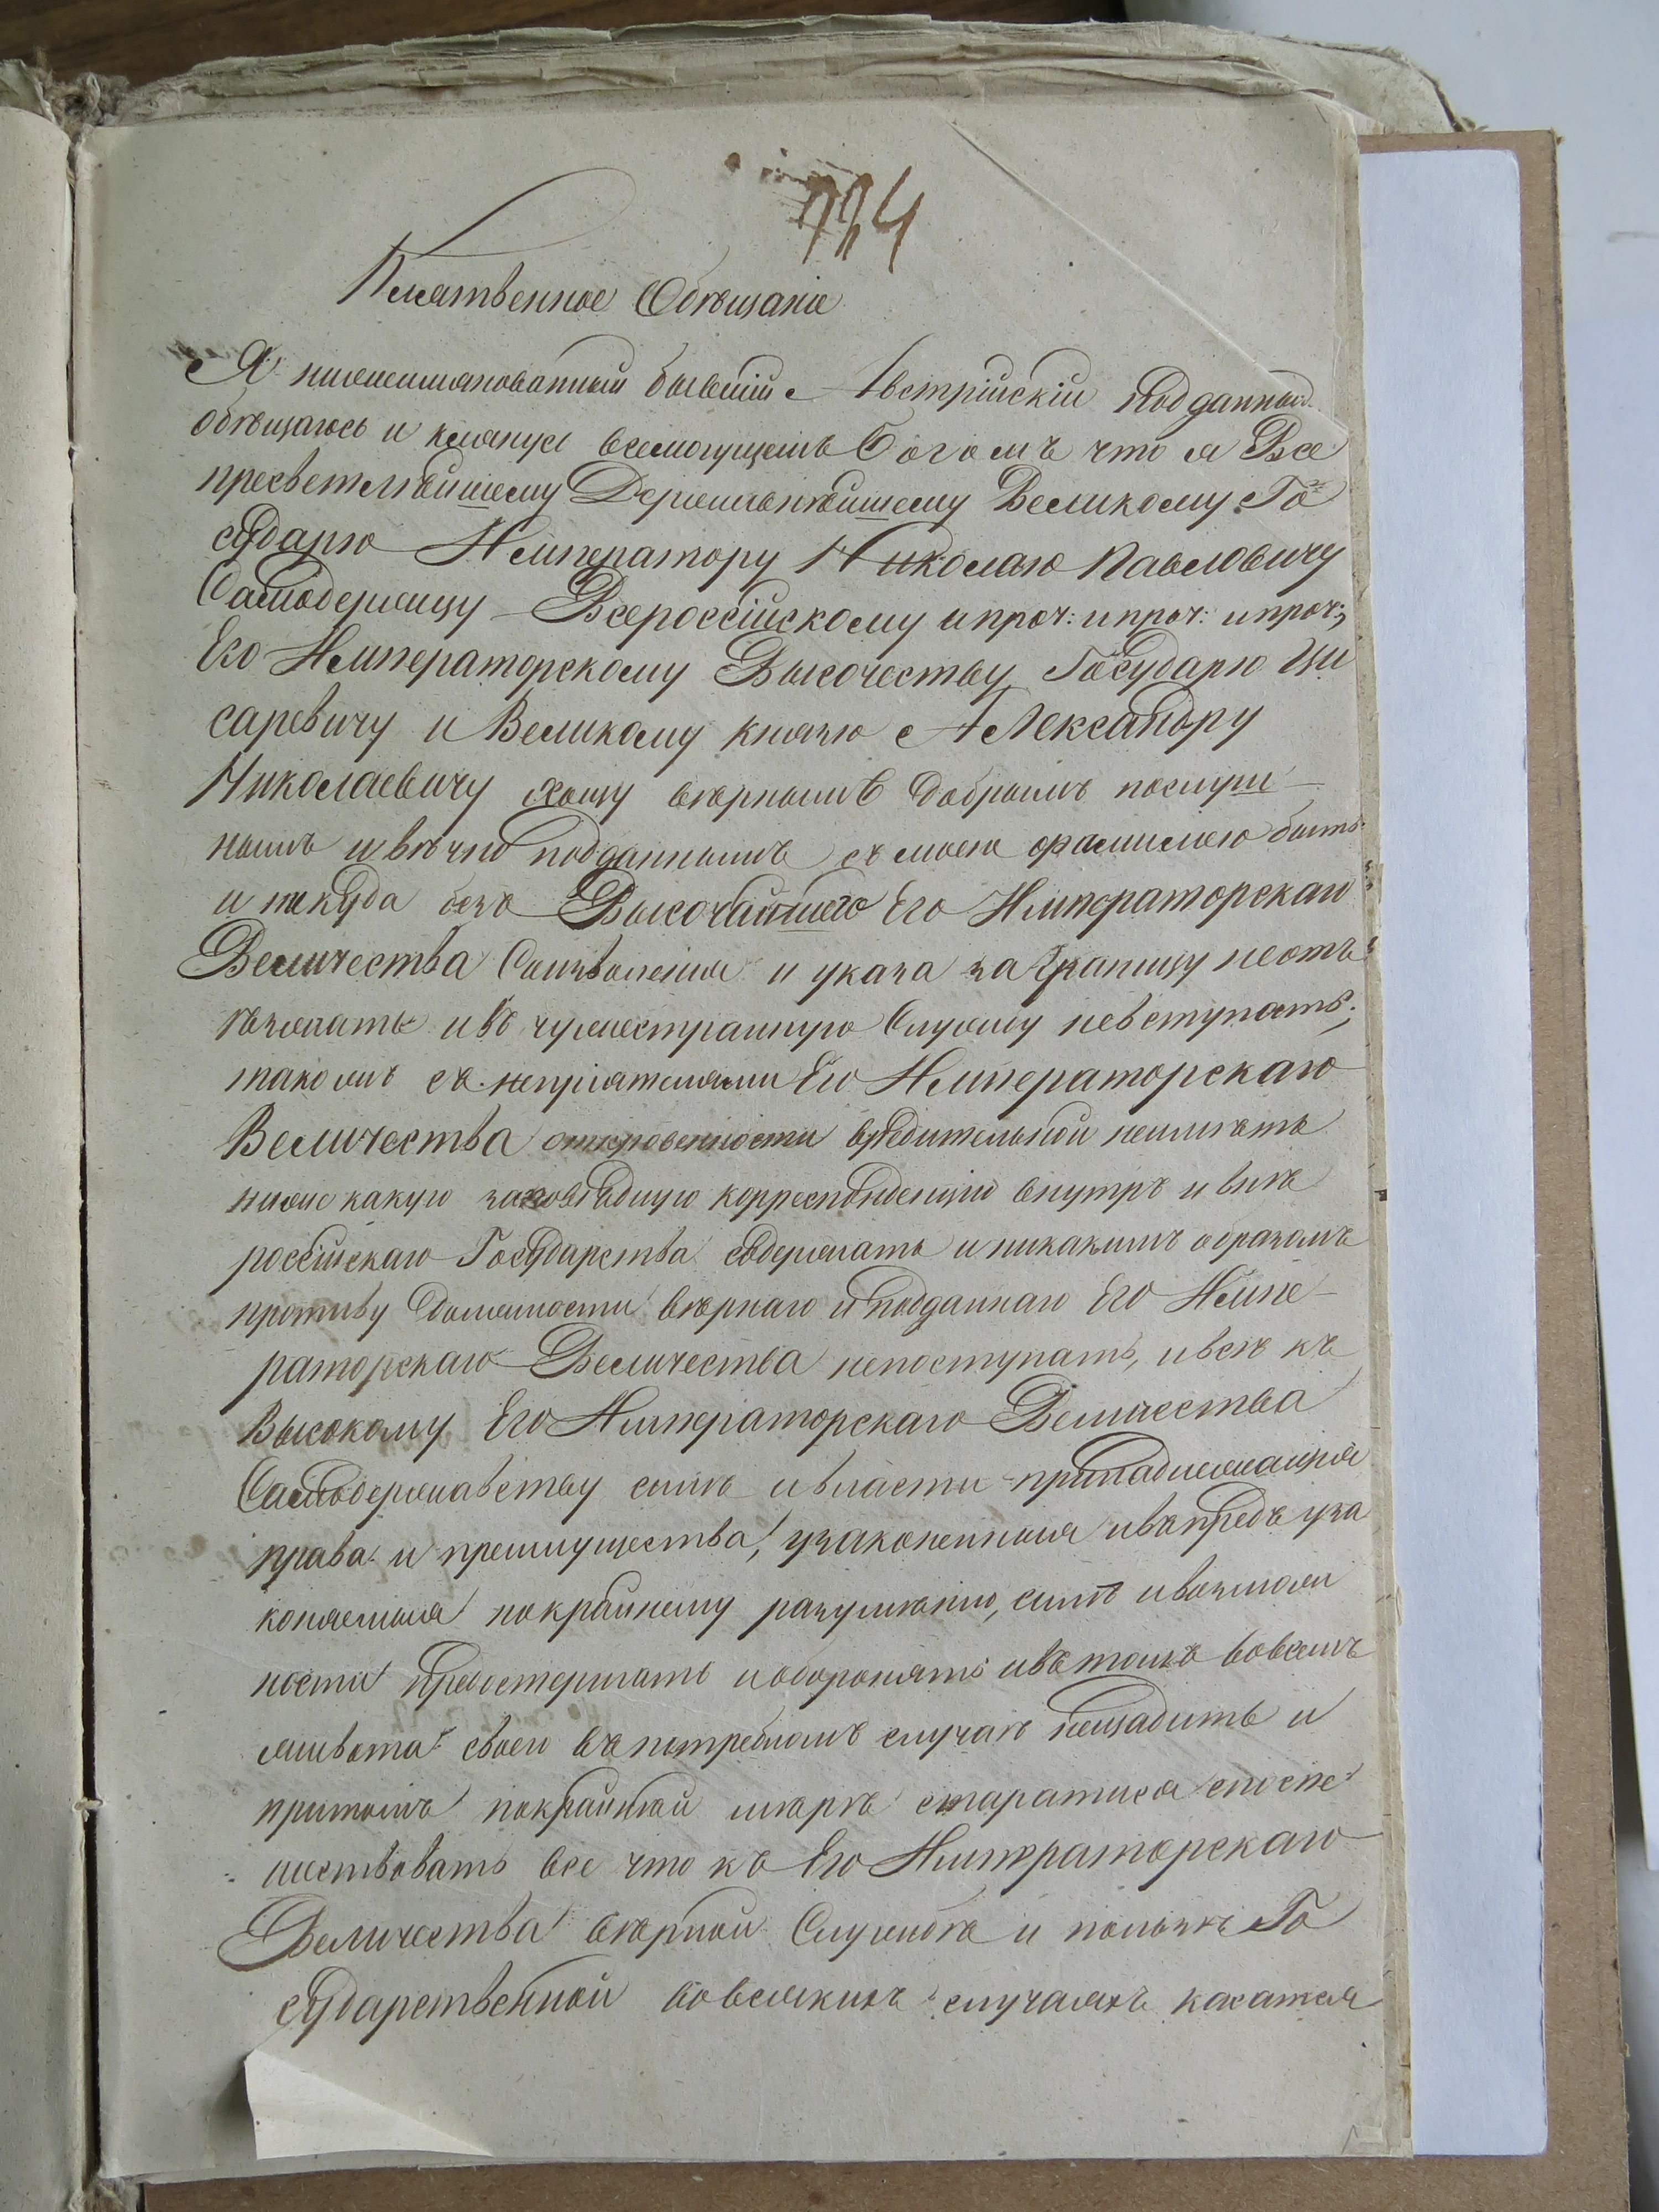 794
Клятвенное Обѣщаніе
Я нижеимянованный бывшій Австрійскій Подданный
обѣщаюсь и клянусь всемогущемъ Богомъ что я Все
пресветлѣйшему Державнѣйшему Великому Го
сударю Императору Николаю Павловичу
Самодержцу Всероссійскому и проч: и проч: и проч:,
Его Императорскому Высочеству Государю Це
саревичу и Великому князю Александру
Николаевичу хощу вѣрнымъ добрымъ послуш-
нымъ и вѣчно подданнымъ съ моею фамилиею быть
и никуда безъ Высочайшего Его Императорскаго
Величества Соизволения и указа за границу неотъ
ѣзжать и въ чужестранную Службу невступать;
такожъ съ неприятелями Его Императорскаго
Величества откровенности вредительной неимѣть
ниже какую заповѣдную корреспонденцию внутрь и внѣ
россійскаго Государства содержать и никакимъ образомъ
противу должности вѣрнаго и подданнаго Его Импе-
раторскаго Величества непоступать, и всѣ къ
Высокому Его Императорскаго Величества
Самодержавству силѣ и власти принадлежащия
права и преимущества, узаконенныя и впредь уза
коняемыя покрайнему разумѣнию, силѣ и возмож
ности предостерегать и оборонять и въ томъ вовсемъ
живота своего въ потребномъ случаѣ нещадить и
притомъ покрайнѣй мѣрѣ старатися споспе
шествовать все что къ Его Императорскаго
Величества вѣрной Службѣ и пользѣ Го
сударственной вовсякихъ случаяхъ касатся